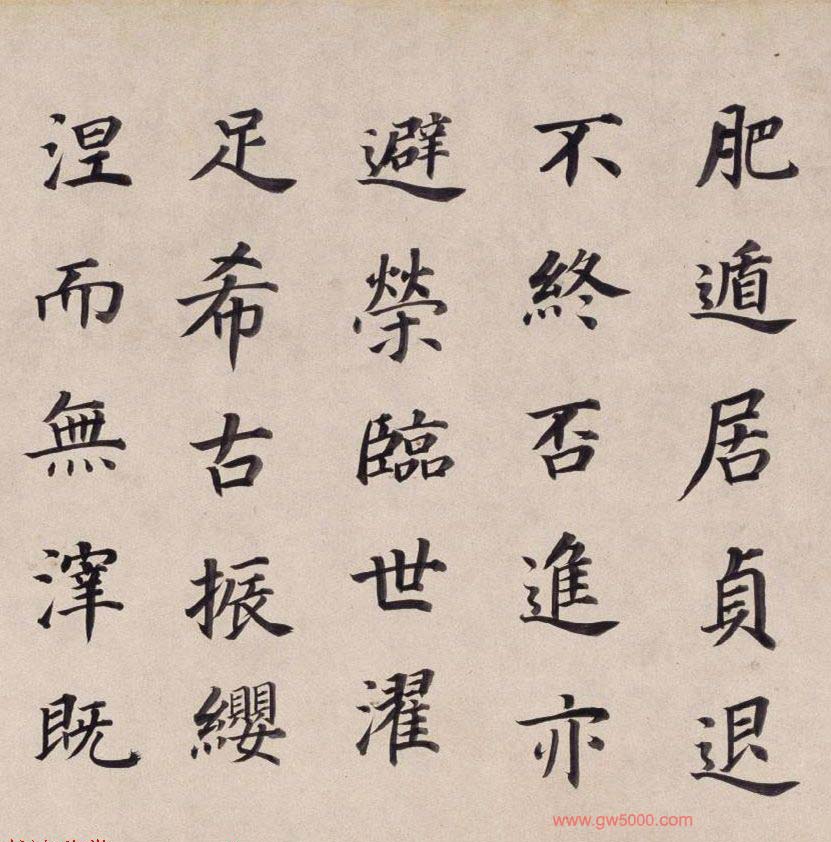 肥遁居貞退
不終否進亦
避榮臨世濯
足希古振纓
涅而無滓既
www.gw5000.com